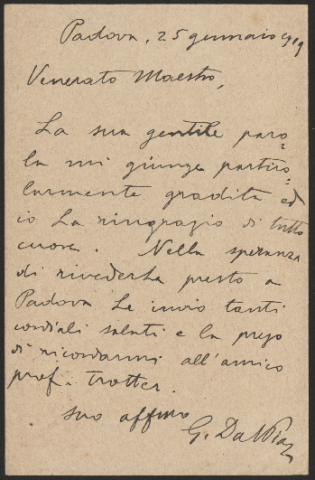 Padova, 25 gennaio 1919
Venerato Maestro,
La sua gentile paro-
la mi giunge partico-
larmente gradita ed
io La ringrazio di tutto
cuore. Nella speranza
di rivederLa presto a
Padova Le invio tanti
cordiali saluti e la prego
di ricordarmi all'amico
prof. Trotter.
suo affmo
G. Dal Piaz